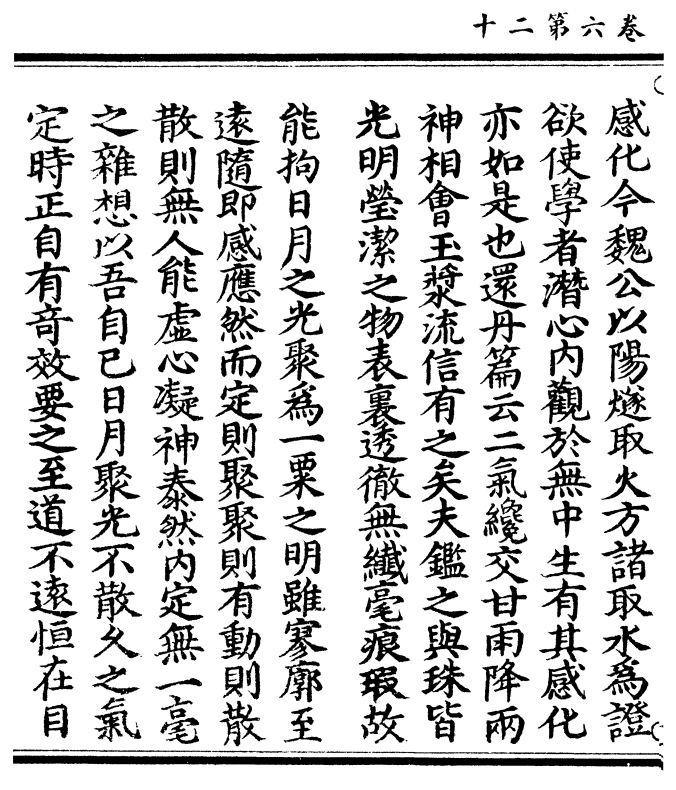 卷六第二十
感化今魏公以陽燧取火方諸取水爲證
欲使學者潛心內觀於無中生有其感化
亦如是也還丹篇云二氣纔交甘雨降兩
神相會玉漿流信有之矣夫鑑之與珠皆
光明瑩潔之物表裏透徹無纖毫痕瑕故
能拘日月之光聚爲一粟之明雖寥廓至
遠隨即感應然而定則聚聚則有動則散
散則無人能虛心凝神泰然內定無一毫
之雜想以吾自己日月聚光不散久之氣
定時正自有竒效要之至道不遠恒在目